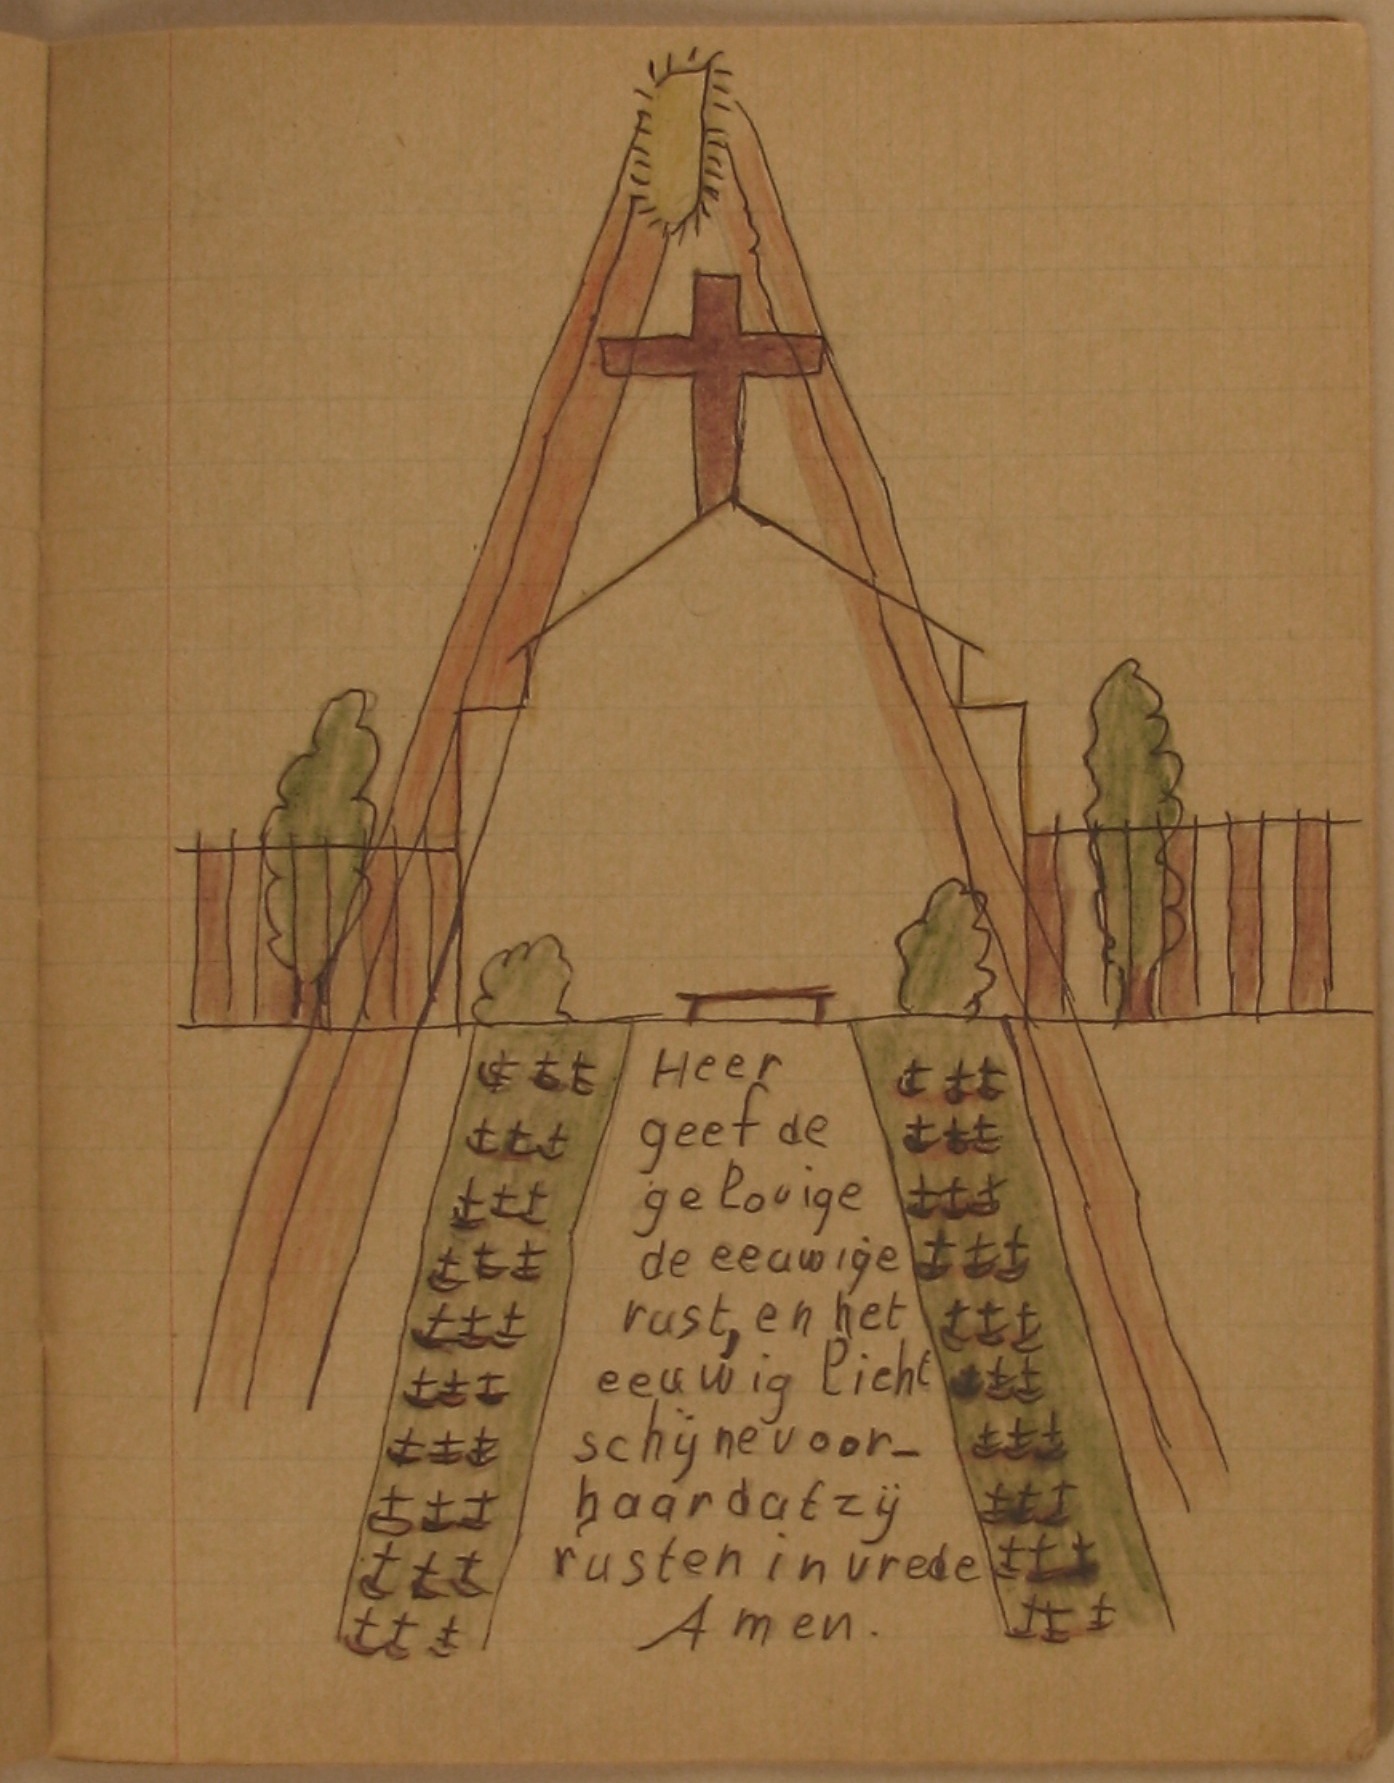 Heer
geef de
gelovige
de eeuwige
rust, en het
eeuwig licht
schijne voor-
haar dat zij
rusten in vrede
Amen.